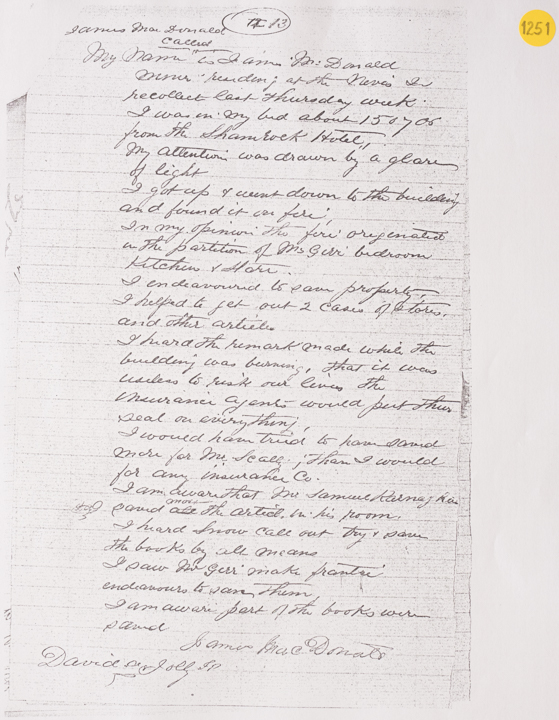 1251
13
James MacDonald
called
My Name is James McDonald
Miner residing at the Nevis I
recollect last Thursday week.
I was in my bed about 150 yds
from the Shamrock Hotel,
My attention was drawn by a glare
of light
I got up & went down to the building
and found it on fire,
In my opinion the fire originated
in the partition of Mr Gerr bedroom
Kitchen & Store.
I endeavoured to save property,
I helped to get out 2 cases of stores,
and other articles
I heard the remark made while the
building was burning, that it was
useless to risk our lives the
insurance agents would put their
seal on everything,
I would have tried to have saved
more for Mr Scally, than I would
for any insurance Co.
I am aware that Mr Samuel
saved most the article in his room.
I heard Snow call out try & save
the books by all means
I saw Mr Gerr make frantic
endeavours to save them,
I am aware part of the books were
saved
James MacDonald
David Jolly JP